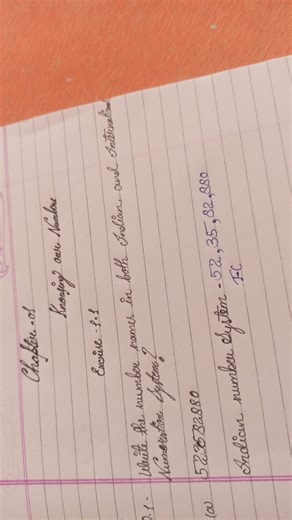 Chapter - 01
Knowing our Numbers
Exercise - 1.1
Q.1. Write the number names in both Indian and International
Numeration System?
(a) 523582880
Indian number system - 52,35,82,880
TC